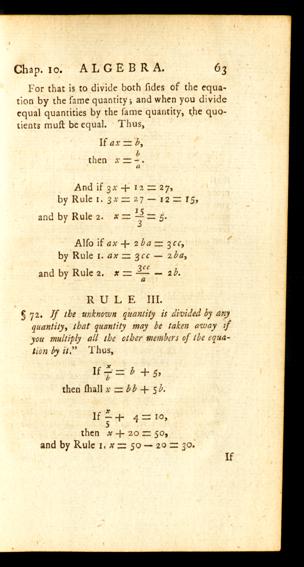 Chap. 10. ALGEBRA. 63
For that is to divide both ſides of the equa-
tion by the ſame quantity; and when you divide
equal quantities by the ſame quantity, the quo-
tients muſt be equal. Thus,
If ax = b,
then x = b/a.
And if 3x + 12 = 27,
by Rule 1. 3x = 27 — 12 = 15,
and by Rule 2. x = 15/3 = 5.
Alſo if ax + 2ba = 3cc,
by Rule 1. ax = 3cc — 2ba,
and by Rule 2. x = 3cc/a — 2b.
RULE III.
§ 72. If the unknown quantity is divided by any
quantity, that quantity may be taken away if
you multiply all the other members of the equa-
tion by it." Thus,
If x/b = b + 5,
then ſhall x = bb + 5b.
If x/5 + 4 = 10,
then x + 20 = 50,
and by Rule 1. x = 50 — 20 = 30.
If